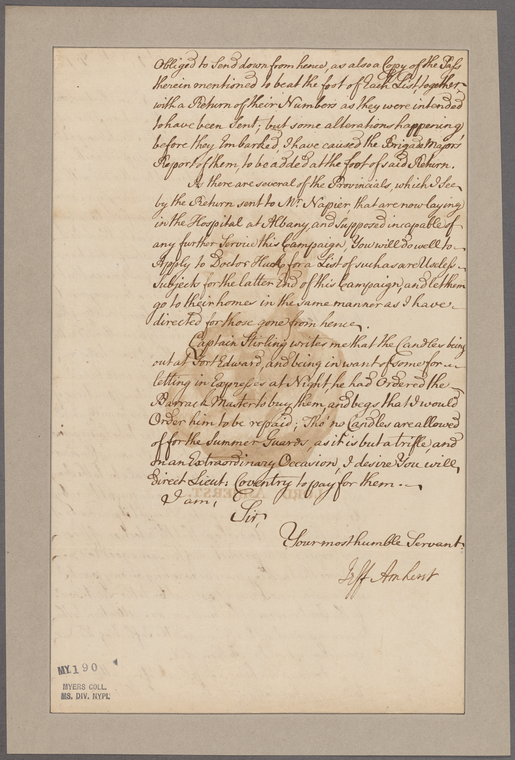 Obliged to Send down from hence, as also a Copy of the Pass
therein mentioned to be at the foot of Each List, together
with a Return of their Numbers as they were intended
to have been Sent; but some alterations happening
before they Embarked, I have caused the Brigade Majors
Report of them, to be added at the foot of said Return.
As there are several of the Provincials, which I See
by the Return sent to Mr. Napier that are now laying
in the Hospital at Albany, and supposed incapable of
any further Service this Campaign, You will do well to
Apply to Doctor Huck for a List of such as are Useless
Subjects for the latter End of this Campaign, and let them
go to their homes in the same manner as I have
directed for those gone from hence.
Captain Stirling writes me that the Candles being
out at Fort Edward, and being in want of some for
letting in Expresses at Night he had Ordered the
Barrack Master to buy them, and begs that I would
Order him to be repaid; Tho' no Candles are allowed
of for the Summer Guards, as it is but a trifle, and
on an Extraordinary Occasion, I desire You will
Direct Lieut: Coventry to pay for them.
I am,
Sir,
Your most humble Servant,
Jeff Amherst
MY.190
MYERS COLL.
MS. DIV. NYPL